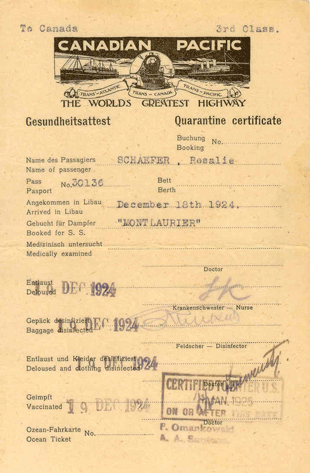 To Canada 3rd Class.
CANADIAN PACIFIC
TRANS-ATLANTIC TRANS-CANADA TRANS-PACIFIC
THE WORLD'S GREATEST HIGHWAY
Gesundheitsattest Quarantine certificate
Buchung No.
Booking
Name des Passagiers SCHAEFER, Rosalie
Name of passenger
Pass No. 30136 Bett
Pasport Berth
Angekommen in Libau December 18th 1924.
Arrived in Libau
Gebucht für Dampfer "MONTLAURIER"
Booked for S. S.
Medizinisch untersucht
Medically examined
Doctor
Entlaust DEC 1924
Deloused
Krankenschwester - Nurse
Gepäck desinfiziert 19 DEC 1924
Baggage disinfected
Feldscher - Disinfector
Entlaust und Kleider desinfiziert DEC 1924
Deloused and clothing disinfected
Doctor
CERTIFIED
Geimpft 19 DEC 1924 JAN. 1925
Vaccinated ON OR AFTER
Ozean-Fahrkarte No. F. Omarkowski
Ocean Ticket A. A.